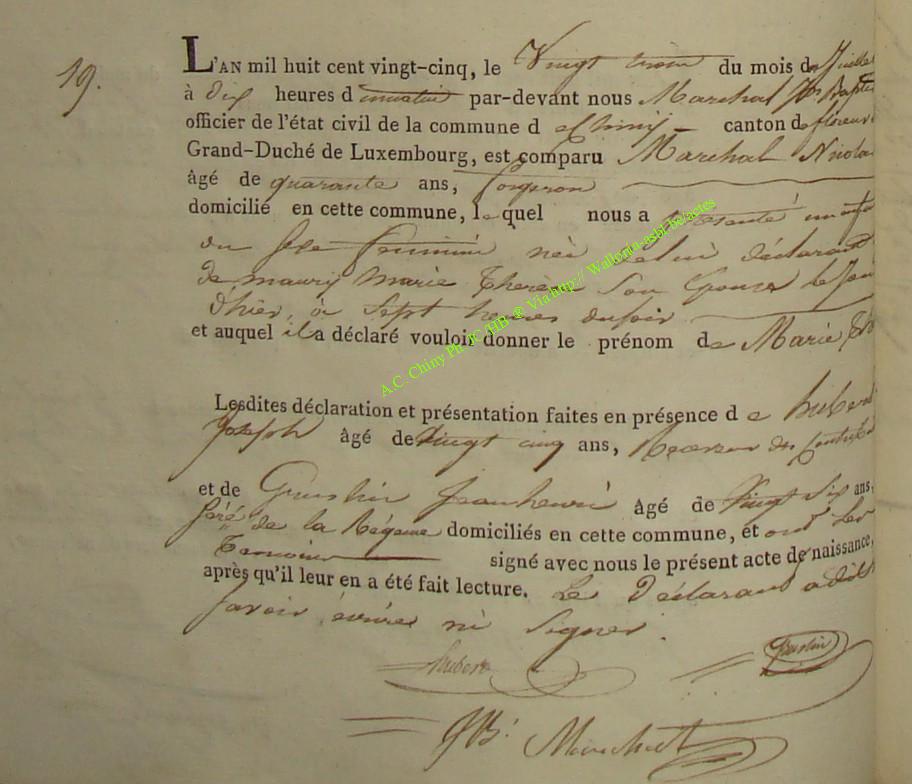 19.
L'AN mil huit cent vingt-cinq, le Vingt trois du mois de Juillet
à dix heures du matin par-devant nous Marchal Jn Bapte
officier de l'état civil de la commune d e Chiny canton de florenv
Grand-Duché de Luxembourg, est comparu Marchal Nicola
âgé de quarante ans,
domicilié en cette commune, le quel nous a présenté un enfa
du sexe feminin née de lui déclarant
de maury Marie Therese son Epouse le jou
dhier, à Sept heures du soir
et auquel il a déclaré vouloir donner le prénom de Marie
Lesdites déclaration et présentation faites en présence d e hubert
Joseph âgé de Vingt cinq ans, Receveur des Contrib
et de Jean henri âgé de Vingt Six ans,
de la Régence domiciliés en cette commune, et ont les
Temoins signé avec nous le présent acte de naissance,
après qu'il leur en a été fait lecture. Le Déclarant a dit
Savoir écrire ni Signer.
hubert
JB. Marchal
A.C. Chiny Ph. JC. HB ® Via http:// Wallonia-asbl-be/actes